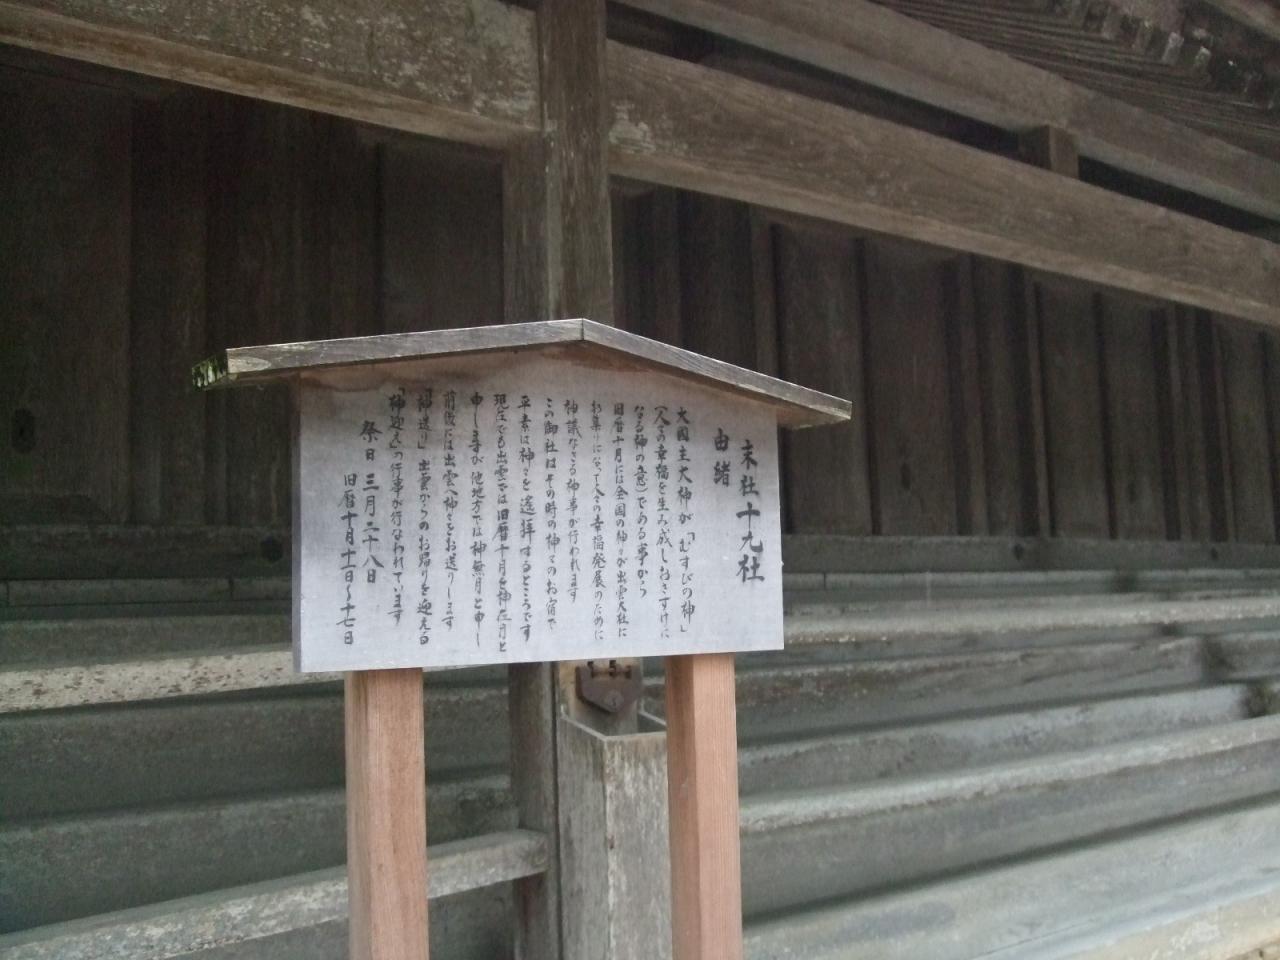 末社十九社
由緒
大国主大神が「むすびの神」
(人々の幸福を生み成しおさずけに
なる神の意)である事から
旧暦十月には全国の神々が出雲大社に
お集りになって人々の幸福発展のために
神議なさる神事が行われます
この御社はその時の神々のお宿で
平素は神々を遙拝するところです
現在でも出雲では旧暦十月を神在月と
申しますが他地方では神無月と申し
前後には出雲へ神々をお送りします
「神送り」出雲からのお帰りを迎える
「神迎え」の行事が行なわれています
祭日 三月二十八日
旧暦十月十一日〜十七日